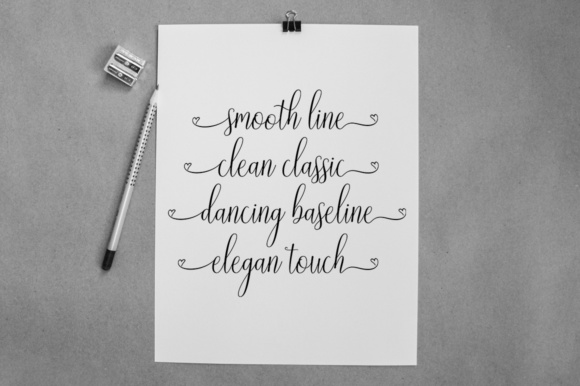 smooth line
clean classic
dancing baseline
elegan touch